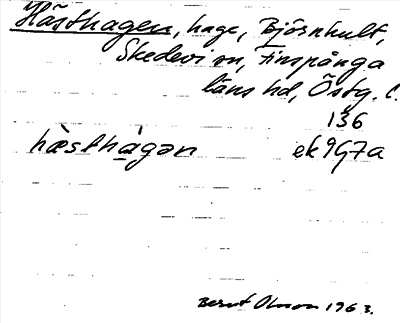 Hästhagen, hage, Björnhult,
Skedevi sn, Finspånga
läns hd, Östg. l.
136
hàesthá̱gən ek 9G7a
Bernt Olsson 1963.